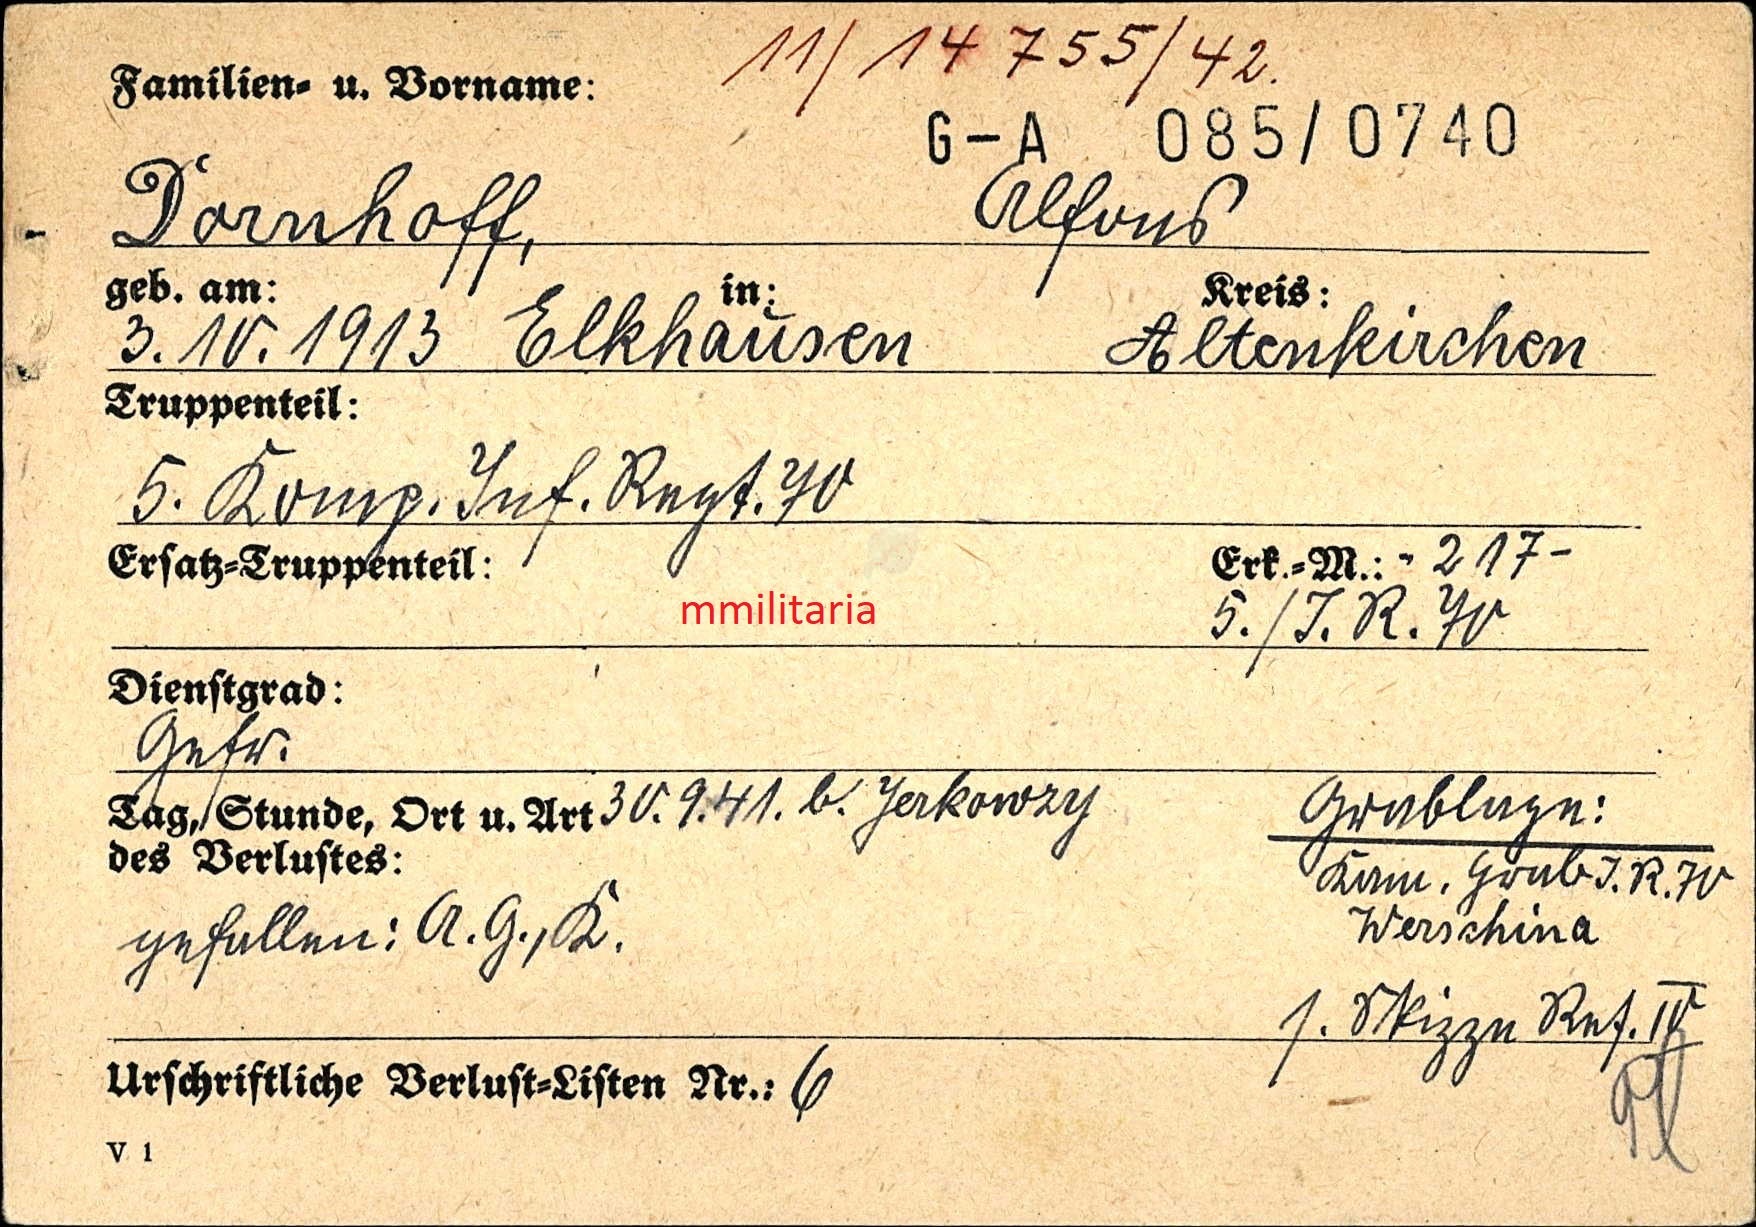 11/ 14 755/42.
Familien- u. Vorname:
G-A 085/0740
Dornhoff, Alfons
geb. am: in: Kreis:
3.10.1913 Elkhausen Altenkirchen
Truppenteil:
5. Komp. Inf. Regt. 70
Ersatz-Truppenteil: Erk.-M.: - 217 -
mmilitaria
5./J. R. 70
Dienstgrad:
Gefr.
Tag, Stunde, Ort u. Art 30.9.41. b. Jerkowzy Grablage:
des Verlustes: Kam. Grab J.R.70
gefallen: A.G., K. Werschina
s. Skizze Ref. IV
Urschriftliche Verlust-Listen Nr.: 6
V 1